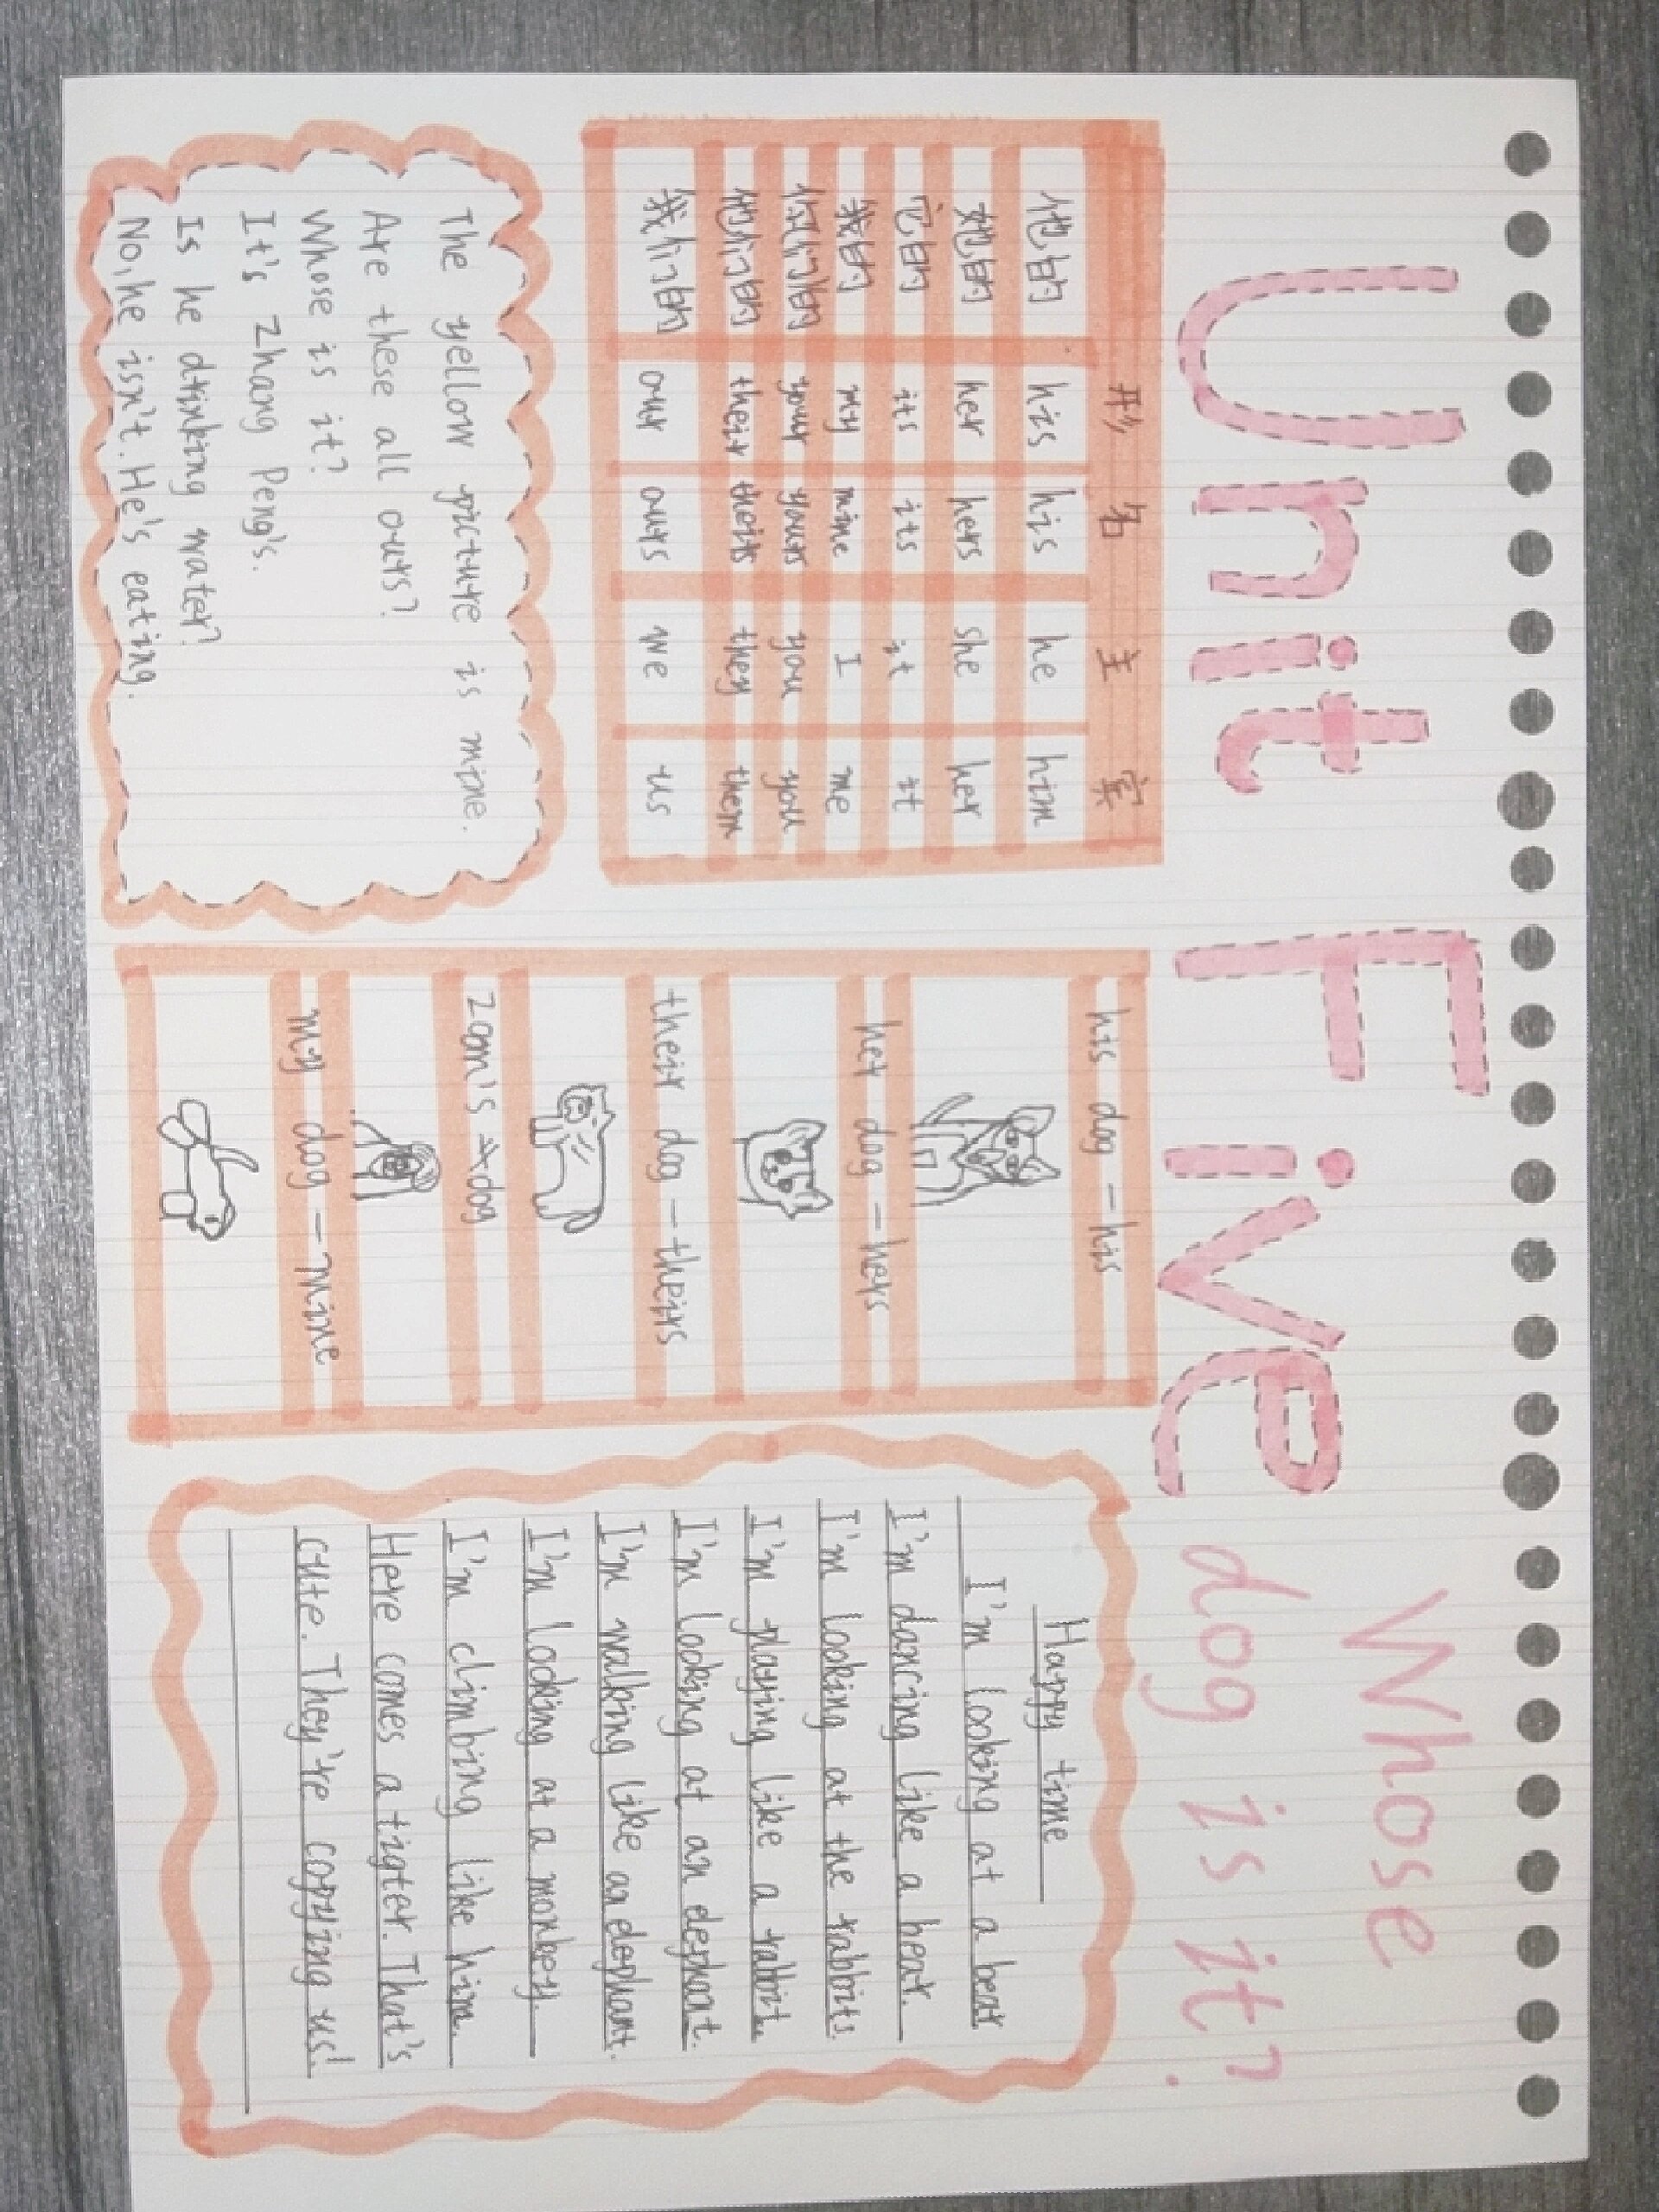 Unit Five
Whose
dog is it?
形 名 主 宾
他的 his his he him
她的 her hers she her
它的 its its it it
我的 my mine I me
你们的 your yours you you
他们的 their theirs they them
我们的 our ours we us
The yellow picture is mine.
Are these all ours?
Whose is it?
It's Zhang Peng's.
Is he drinking water?
No, he isn't. He's eating.
his dog — his
her dog — hers
their dog — theirs
Zoom's dog
my dog — mine
Happy time
I'm looking at a bear
I'm dancing like a bear.
I'm looking at the rabbits.
I'm playing like a rabbit.
I'm looking at an elephant.
I'm walking like an elephant.
I'm looking at a monkey.
I'm climbing like him.
Here comes a tigter. That's
cute. They're copying us!